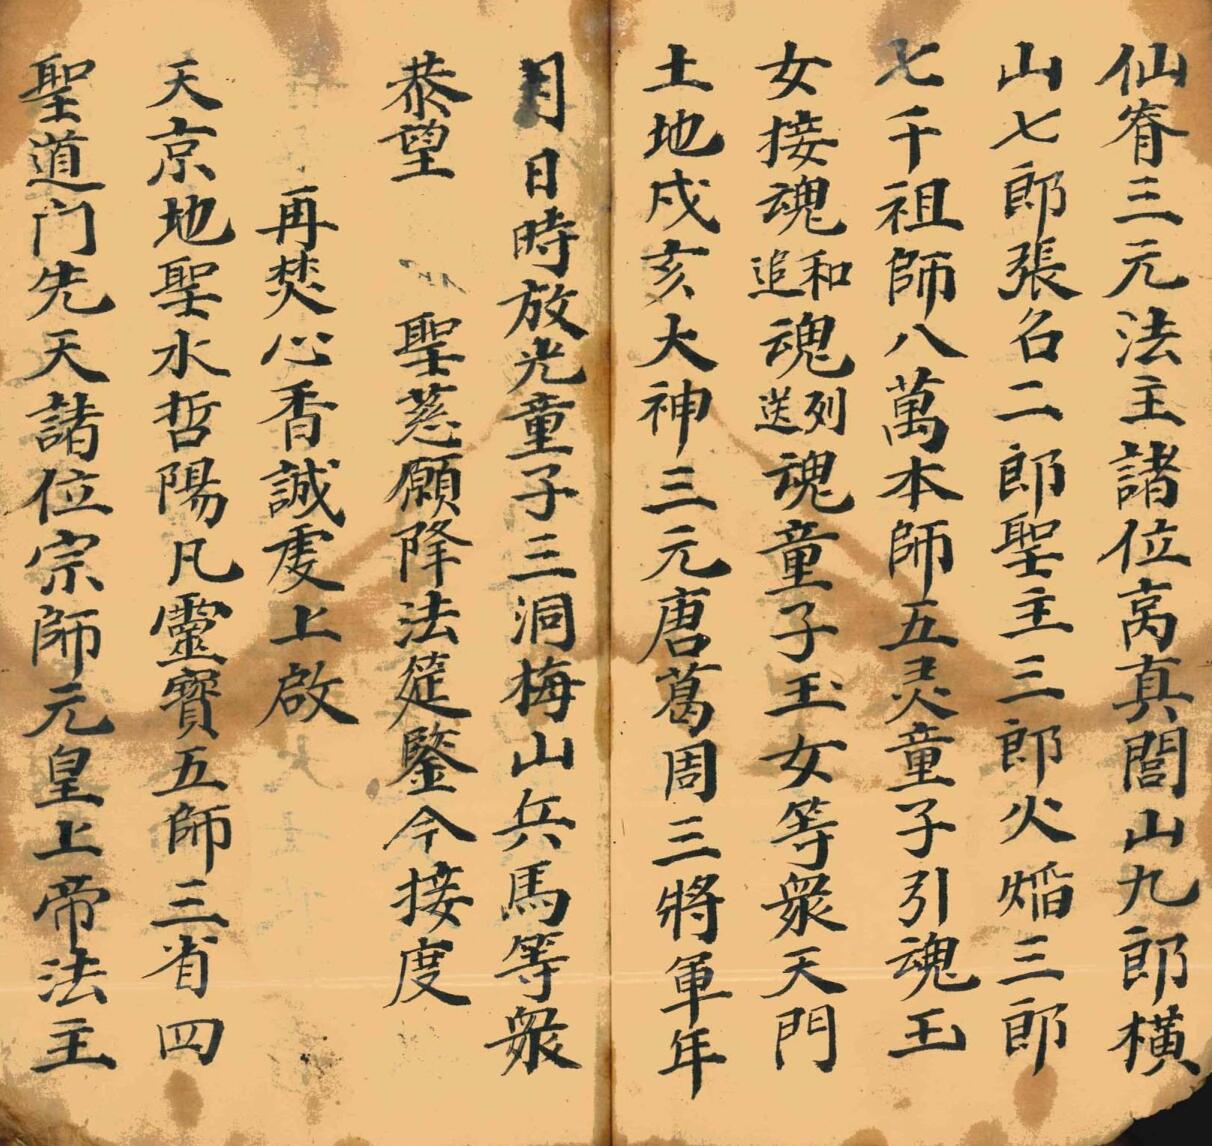 仙脊三元法主諸位高真閭山九郎橫
山七郎張名二郎聖主三郎火焰三郎
七千祖師八萬本師五灵童子引魂玉
女接魂和追魂列送魂童子玉女等衆天門
土地戍亥大神三元唐葛周三將軍年
月日時放光童子三洞梅山兵馬等衆
恭望 聖慈願降法筵鑒今接度
再焚心香誠虔上啟
天京地聖水哲陽凡靈寶五師三省四
聖道門先天諸位宗師元皇上帝法主